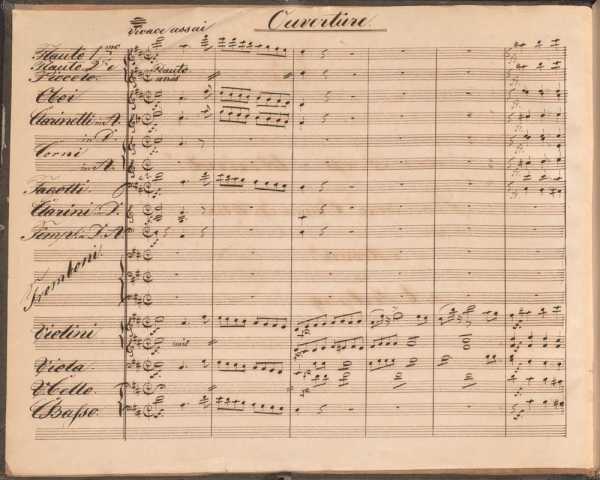 Ouverture.
Vivace assai
Flauto 1mo
Flauto 2do e
Piccolo.
Flauto
unis
Oboi
Clarinetti in A.
in D.
Corni
in A.
Fagotti.
Clarini in D.
Timp. in D. A.
Tromboni.
Violini
unis
Viola.
V.Cello.
C.Basso.